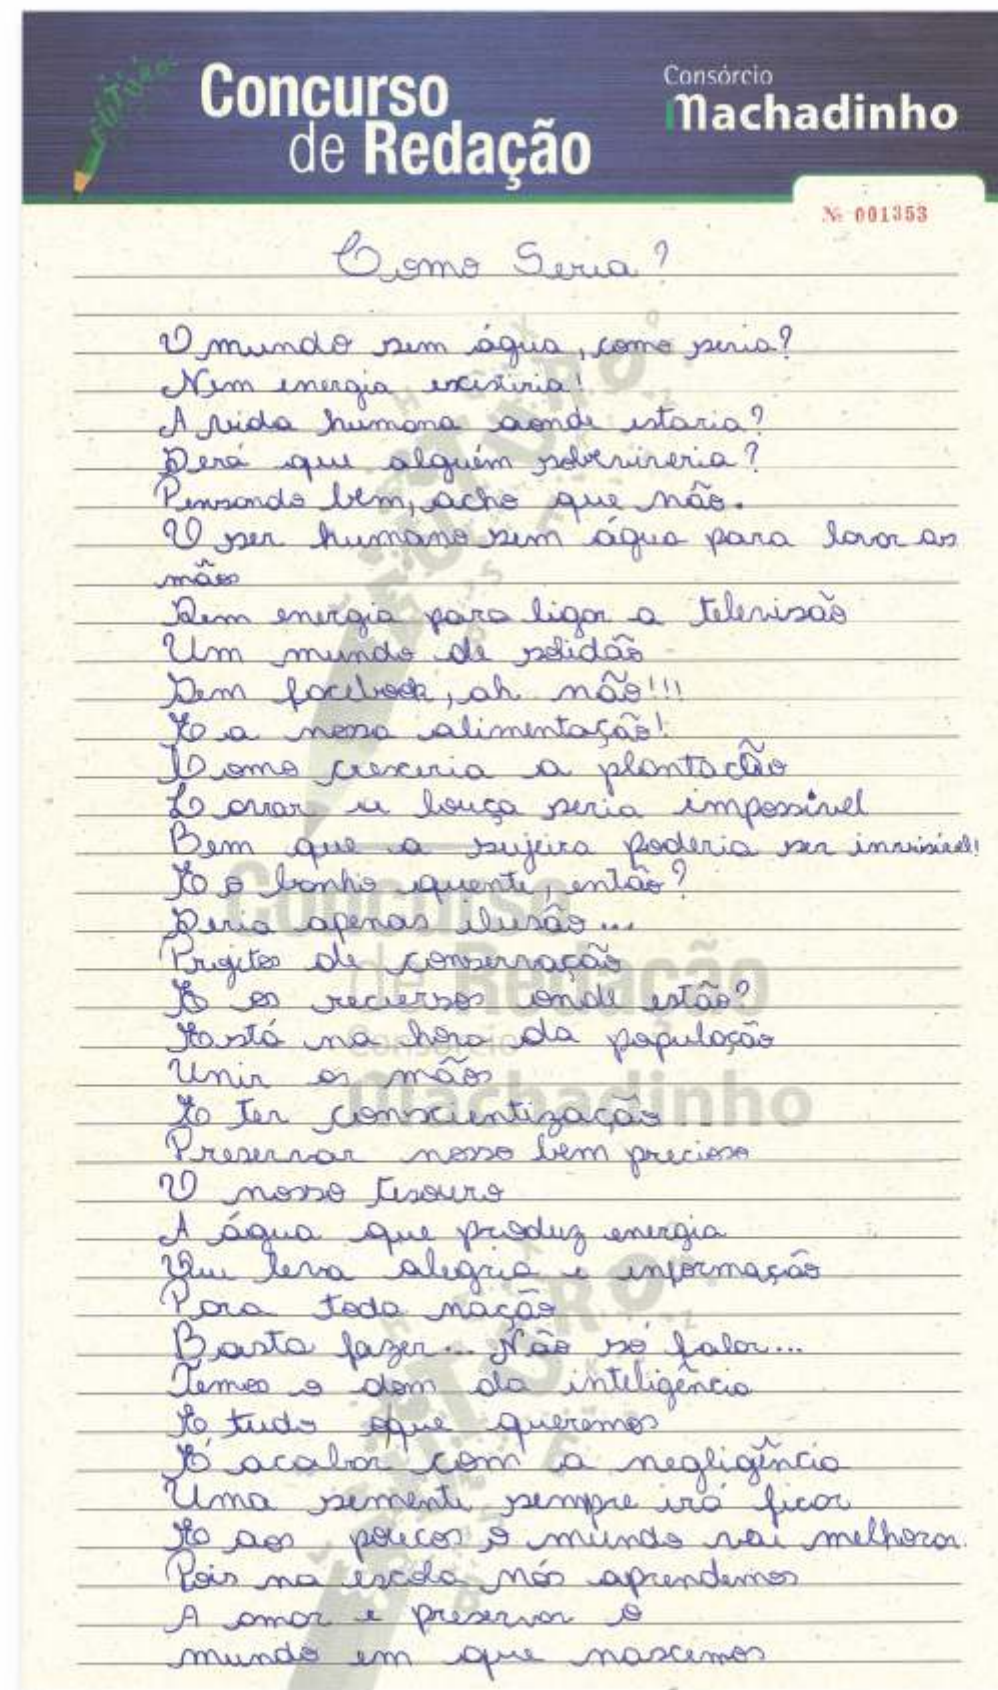 FUTURO
Concurso
de Redação
Consórcio
Machadinho
№ 001353
Como Seria?
O mundo sem água, como seria?
Nem energia existiria!
A vida humana aonde estaria?
Será que alguém sobreviveria?
Pensando bem, acho que não.
O ser humano sem água para lavar as
mãos
Sem energia para ligar a televisão
Um mundo de solidão
Sem facebook, ah não!!!
E a nossa alimentação!
Como cresceria a plantação
Lavar a louça seria impossível
Bem que a sujeira poderia ser invisível!
E o banho quente, então?
Seria apenas ilusão...
Projetos de conservação
E os recursos onde estão?
Está na hora da população
Unir as mãos
E ter conscientização
Preservar nosso bem precioso
O nosso tesouro
A água que produz energia
Que leva alegria e informação
Para toda nação
Basta fazer... Não só falar...
Temos o dom da inteligência
E tudo oque queremos
É acabar com a negligência
Uma semente sempre irá ficar
E aos poucos o mundo vai melhorar.
Pois na escola nós aprendemos
A amar e preservar o
mundo em que nascemos